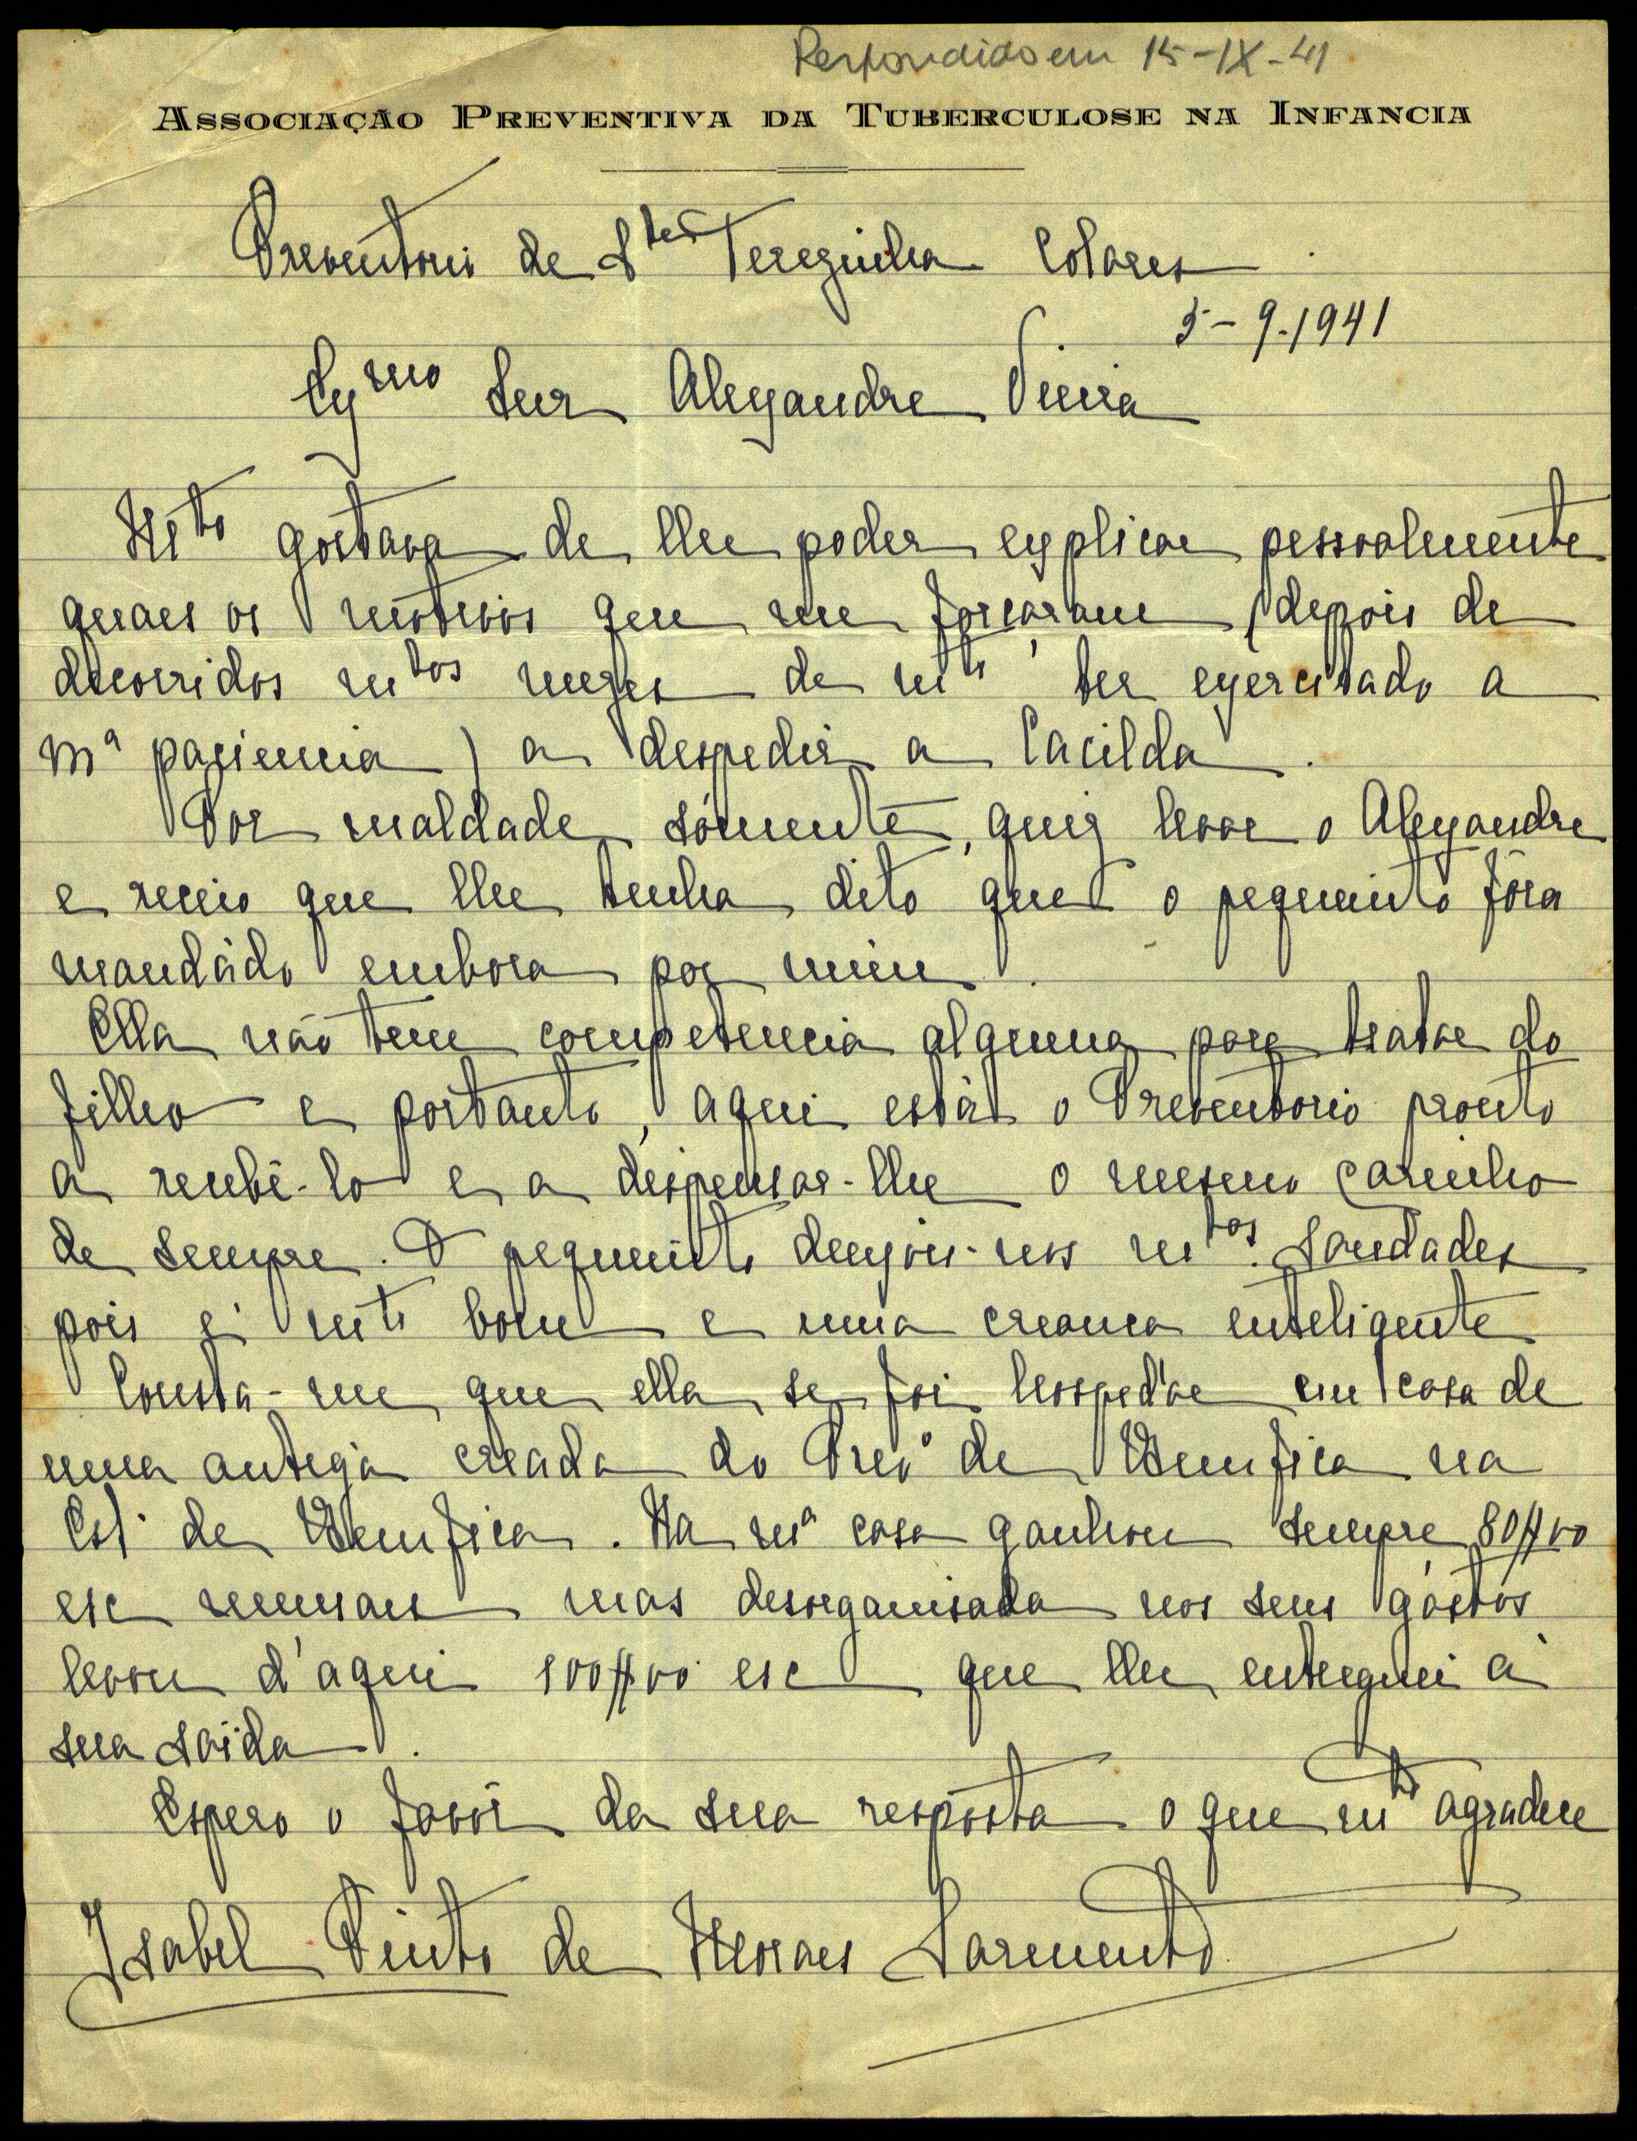 Respondido em 15-IX-41
ASSOCIAÇÃO PREVENTIVA DA TUBERCULOSE NA INFANCIA
Preventorio de Sta Terezinha Colares
5-9-1941
Exmo Snr Alexandre Vieira
Mto gostava de lhe poder explicar pessoalmente
quaes os motivos que me forcaram (depois de
decorridos mtos mezes de mto ter exercitado a
mª paciencia) a despedir a Cacilda.
Por maldade sómente, quiz levar o Alexandre
e receio que lhe tenha dito que o pequenito fôra
mandádo embora por mim.
Ella não tem competencia alguma para tratar do
filho e portanto, aqui está o Preventorio pronto
a recebê-lo e a dispensar-lhe o mesmo carinho
de sempre. O pequenito deixou-nos mtas. saudades
pois é mto bom e uma creanca enteligente
Consta-me que ella se foi hospedár em casa de
uma antega creada do Prevº de Bemfica na
Est. de Bemfica. Na mª casa ganhou sempre 80$00
esc mensaes mas desorganisada nos seus gástos
levou d'aqui 100$00 esc que lhe entreguei á
sua saída.
Espero o favôr da sua resposta o que mto agradece
Isabel Pinto de Moraes Sarmento